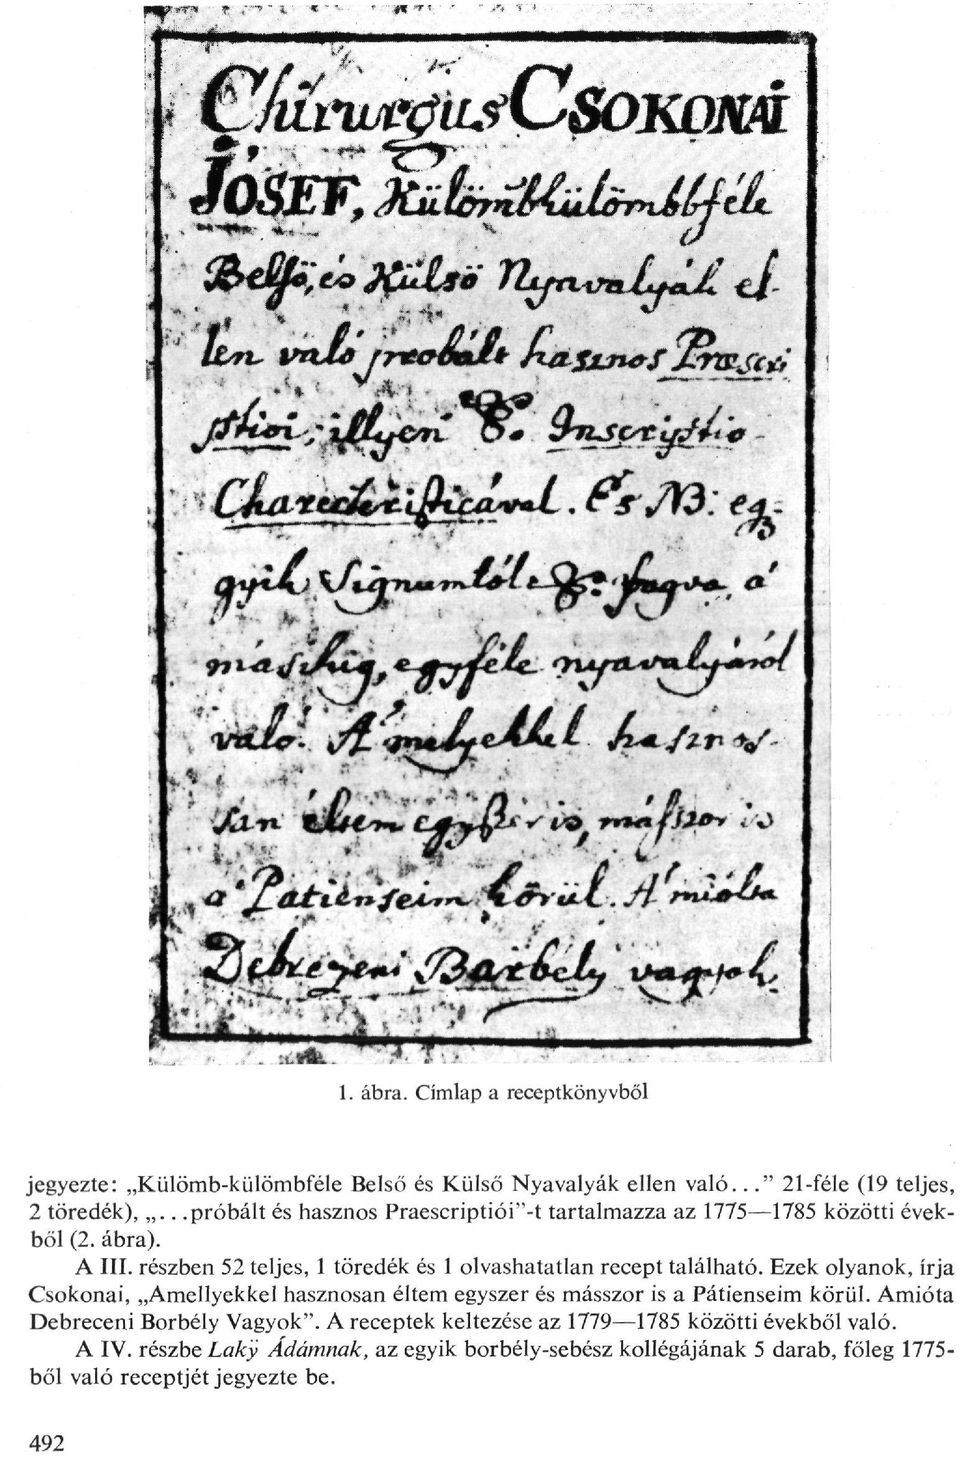 Chirurgus CSOKONAI
JÓSEF, Külömbkülömbféle
Belsö, és Külsö Nyavalyák el-
len való probált hasznos Præscri
ptioi, illyen &. Inscriptio
Charecteristicával. És NB: eg-
gyik Signumtól &. fogva a'
másikig, egyféle nyavalyáról
való. A' melyekkel hasznos-
san éltem egyszer is, másszor is
a' Patienseim körül. A' miólta
Debreczeni Barbély vagyok.
1. ábra. Címlap a receptkönyvből
jegyezte: „Külömb-külömbféle Belső és Külső Nyavalyák ellen való...” 21-féle (19 teljes,
2 töredék), „...próbált és hasznos Praescriptiói”-t tartalmazza az 1775—1785 közötti évek-
ből (2. ábra).
A III. részben 52 teljes, 1 töredék és 1 olvashatatlan recept található. Ezek olyanok, írja
Csokonai, „Amellyekkel hasznosan éltem egyszer és másszor is a Pátienseim körül. Amióta
Debreceni Borbély Vagyok”. A receptek keltezése az 1779—1785 közötti évekből való.
A IV. részbe Laky Ádámnak, az egyik borbély-sebész kollégájának 5 darab, főleg 1775-
ből való receptjét jegyezte be.
492